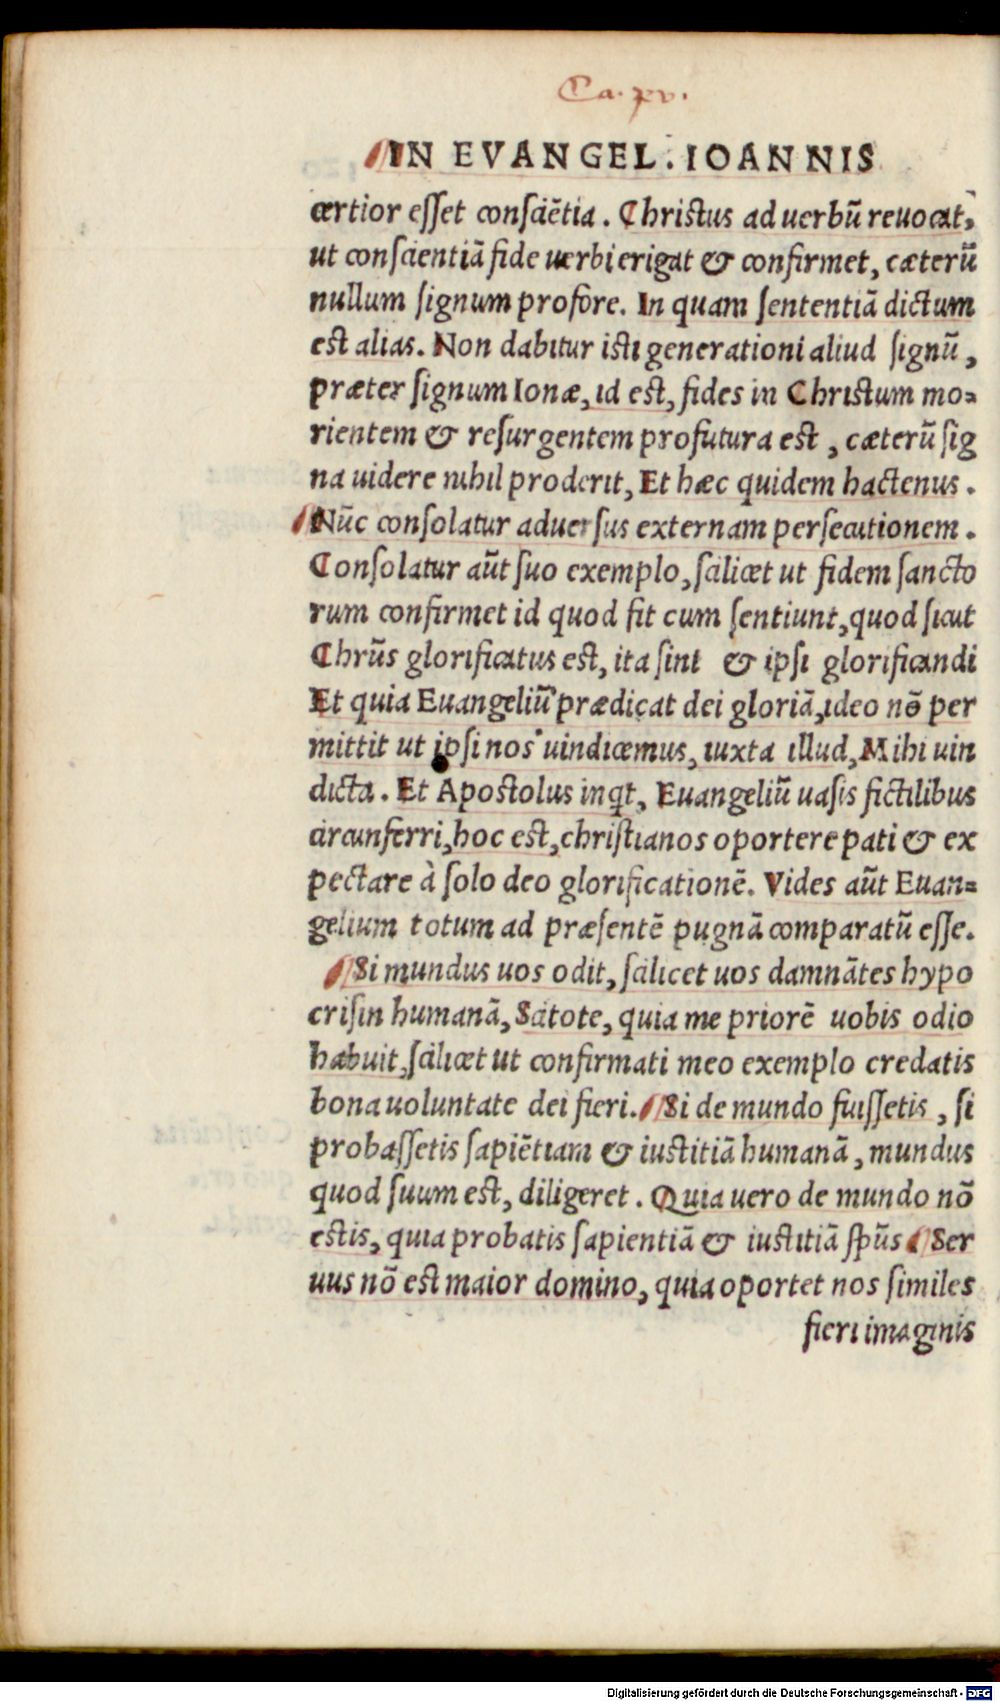 Ca. xv.
IN EVANGEL. IOANNIS
certior esset consciẽtia. Christus ad uerbũ reuocat,
ut conscientiã fide uerbi erigat & confirmet, cæterũ
nullum signum profore. In quam sententiã dictum
est alias. Non dabitur isti generationi aliud signũ,
præter signum Ionæ, id est, fides in Christum mo=
rientem & resurgentem profutura est, cæterũ sig
na uidere nihil proderit, Et hæc quidem hactenus.
Nũc consolatur aduersus externam persecutionem.
Consolatur aũt suo exemplo, scilicet ut fidem sancto
rum confirmet id quod fit cum sentiunt, quod sicut
Chrũs glorificatus est, ita sint & ipsi glorificandi
Et quia Euangeliũ prædicat dei gloriã, ideo nõ per
mittit ut ipsi nos uindicemus, iuxta illud, Mihi uin
dicta. Et Apostolus inqt, Euangeliũ uasis fictilibus
circunferri, hoc est, christianos oportere pati & ex
pectare à solo deo glorificationẽ. Vides aũt Euan=
gelium totum ad præsentẽ pugnã comparatũ esse.
Si mundus uos odit, scilicet uos damnãtes hypo
crisin humanã, Scitote, quia me priorẽ uobis odio
habuit, scilicet ut confirmati meo exemplo credatis
bona uoluntate dei fieri. Si de mundo fuissetis, si
probassetis sapiẽtiam & iustitiã humanã, mundus
quod suum est, diligeret. Quia uero de mundo nõ
estis, quia probatis sapientiã & iustitiã sp̃us Ser
uus nõ est maior domino, quia oportet nos similes
fieri imaginis
Digitalisierung gefördert durch die Deutsche Forschungsgemeinschaft - DFG